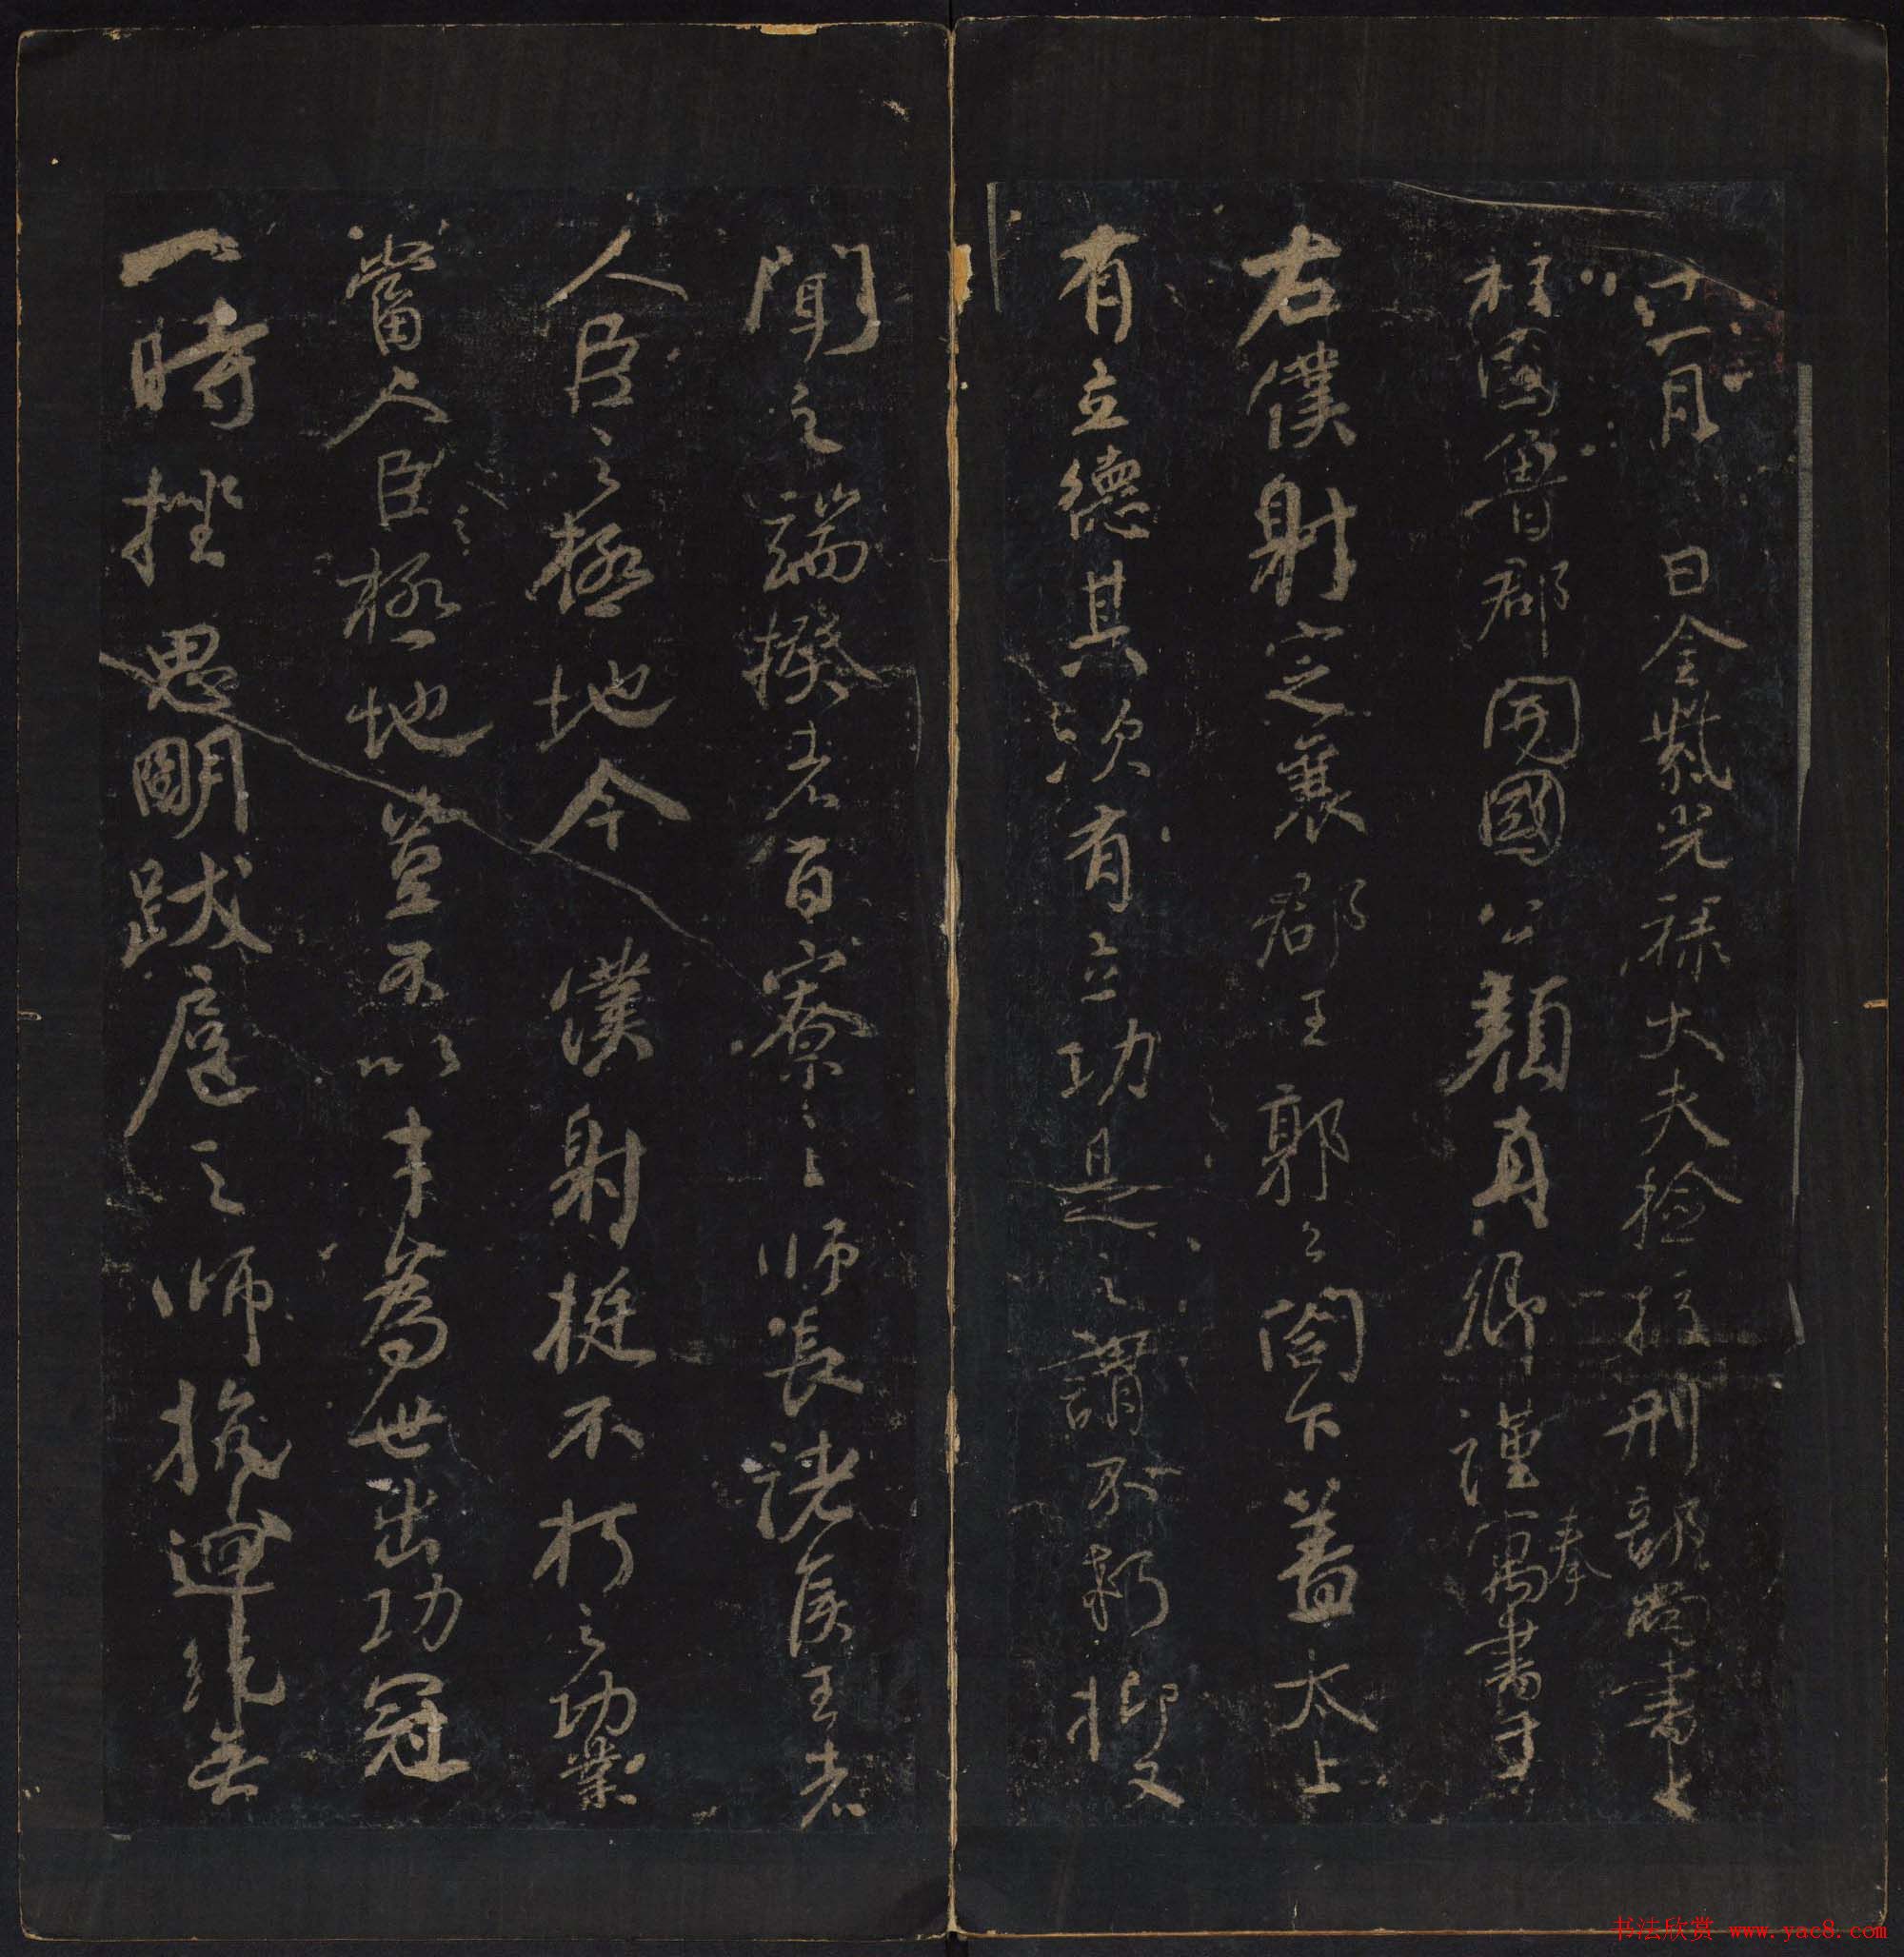 十一月日金紫光祿大夫檢校刑部尚書上
柱國魯郡開國公顏真卿謹奉寓書于
右僕射定襄郡王郭公閤下蓋太上
有立德其次有立功是之謂不朽抑又
聞之端揆者百寮之師長諸侯王者
人臣之極地今僕射挺不朽之功業
當人臣之極地豈不以才為世出功冠
一時挫思明跋扈之師抗迴紇無
书法欣赏 www.yac8.com